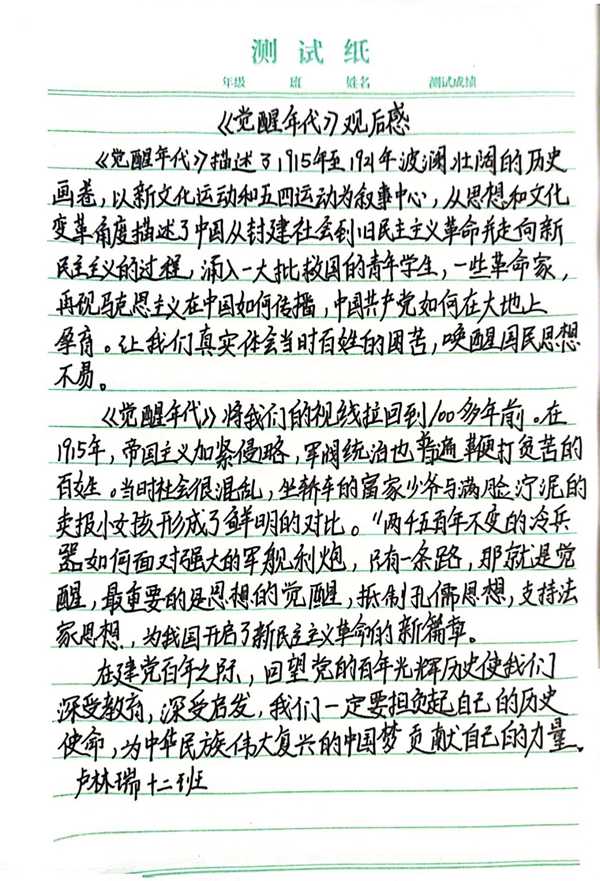 测试纸
年级 班 姓名 测试成绩
《觉醒年代》观后感
《觉醒年代》描述了1915年至1921年波澜壮阔的历史
画卷，以新文化运动和五四运动为叙事中心，从思想和文化
变革角度描述了中国从封建社会到旧民主主义革命并走向新
民主主义的过程，涌入一大批救国的青年学生，一些革命家，
再现马克思主义在中国如何传播，中国共产党如何在大地上
孕育。让我们真实体会当时百姓的困苦，唤醒国民思想
不易。
《觉醒年代》将我们的视线拉回到100多年前。在
1915年，帝国主义加紧侵略，军阀统治也普遍鞭打贫苦的
百姓。当时社会很混乱，坐轿车的富家少爷与满脸泞泥的
卖报小女孩形成了鲜明的对比。"两千五百年不变的冷兵
器如何面对强大的军舰利炮，只有一条路，那就是觉
醒，最重要的是思想的觉醒，抵制孔儒思想，支持法
家思想，为我国开启了新民主主义革命的新篇章。
在建党百年之际，回望党的百年光辉历史使我们
深受教育，深受启发，我们一定要担负起自己的历史
使命，为中华民族伟大复兴的中国梦贡献自己的力量。
卢林瑞 十二班